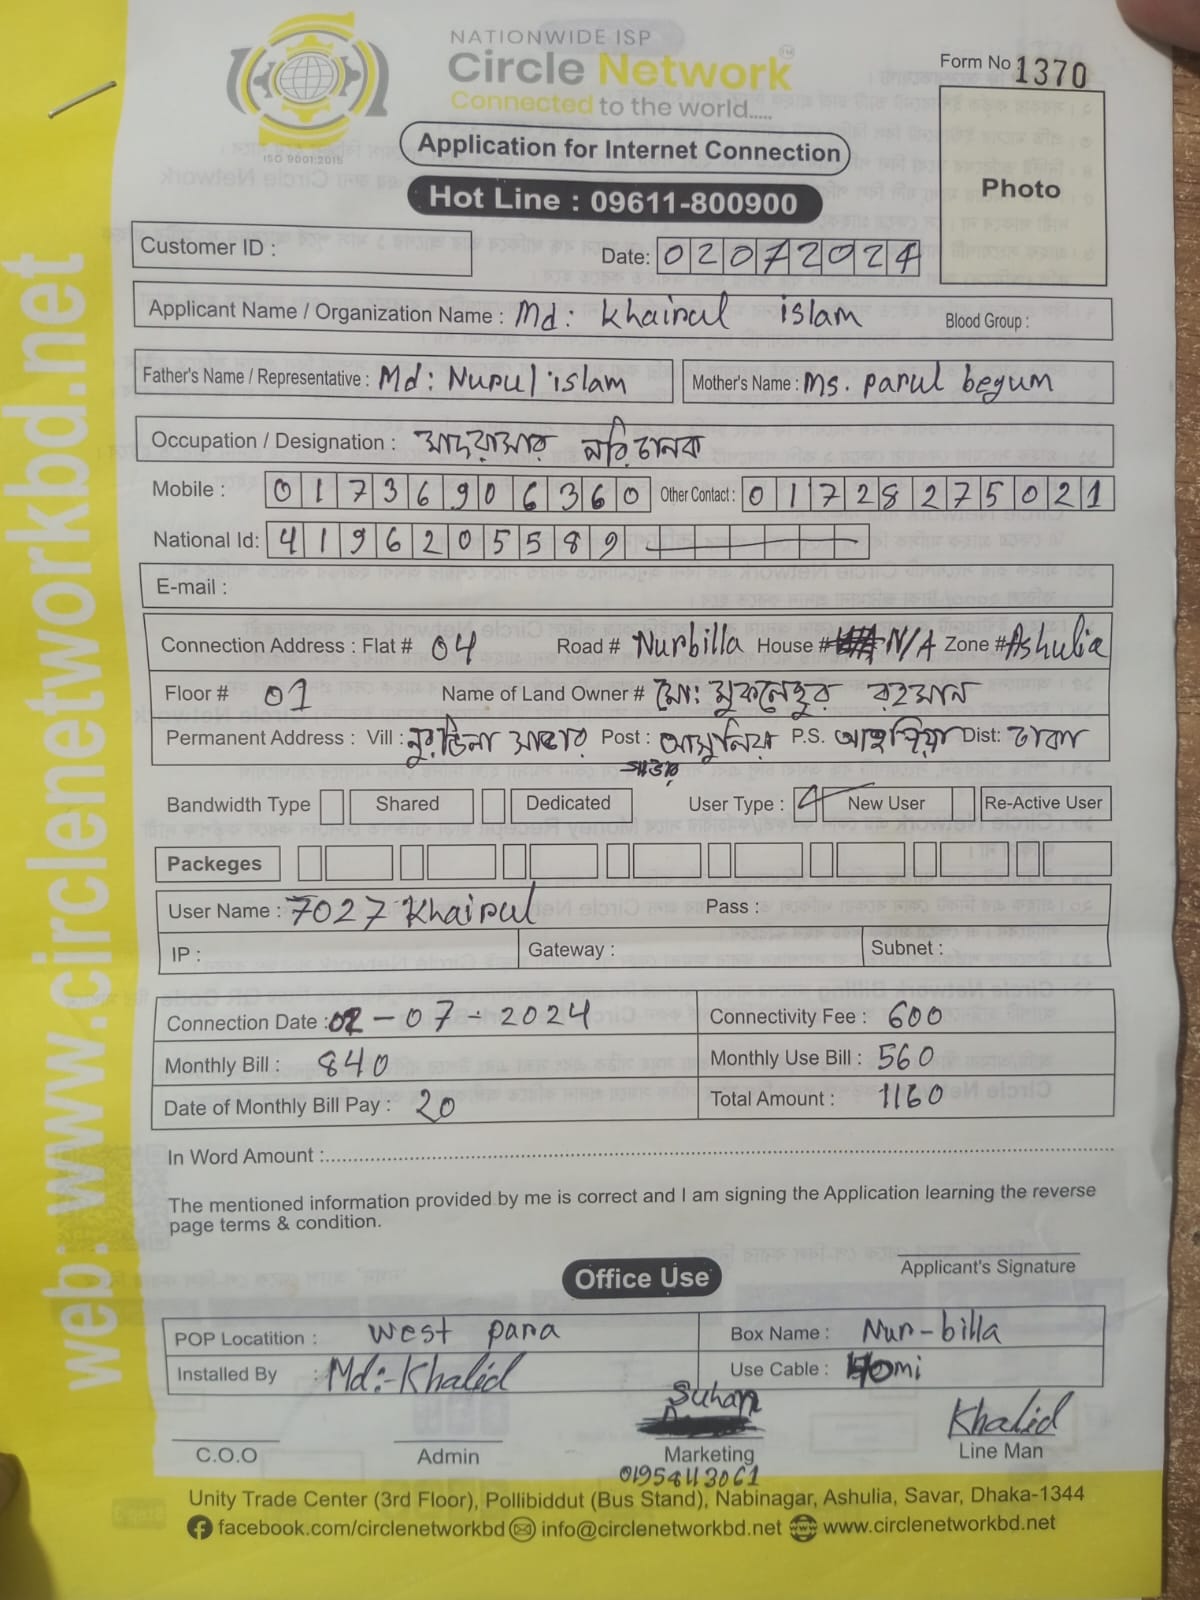 NATIONWIDE ISP
Circle Network
Connected to the world.....
ISO 9001:2015
Form No 1370
Application for Internet Connection
Hot Line : 09611-800900
Photo
Customer ID :
Date: 02072024
Applicant Name / Organization Name : Md: Khairul islam Blood Group :
Father's Name / Representative : Md: Nurul islam Mother's Name : Ms. parul begum
Occupation / Designation : মাদ্রাসার পরিচালক
Mobile : 01736906360 Other Contact : 01728275021
National Id: 4196205589
E-mail :
Connection Address : Flat # 04 Road # Nurbilla House # N/A Zone # Ashulia
Floor # 01 Name of Land Owner # মো: মুকলেছুর রহমান
Permanent Address : Vill : Post : আশুলিয়া P.S. আশুলিয়া Dist: ঢাকা
সাভার
Bandwidth Type Shared Dedicated User Type : New User Re-Active User
Packeges
User Name : 7027 Khairul Pass :
IP : Gateway : Subnet :
Connection Date : 02-07-2024 Connectivity Fee : 600
Monthly Bill : 840 Monthly Use Bill : 560
Date of Monthly Bill Pay : 20 Total Amount : 1160
In Word Amount :
The mentioned information provided by me is correct and I am signing the Application learning the reverse
page terms & condition.
Applicant's Signature
Office Use
POP Locatition : West para Box Name : Nur-billa
Installed By : Md:-Khalid Use Cable :
Suhan
Khalid
C.O.O Admin Marketing Line Man
01958113061
Unity Trade Center (3rd Floor), Pollibiddut (Bus Stand), Nabinagar, Ashulia, Savar, Dhaka-1344
facebook.com/circlenetworkbd info@circlenetworkbd.net www.circlenetworkbd.net
web: www.circlenetworkbd.net